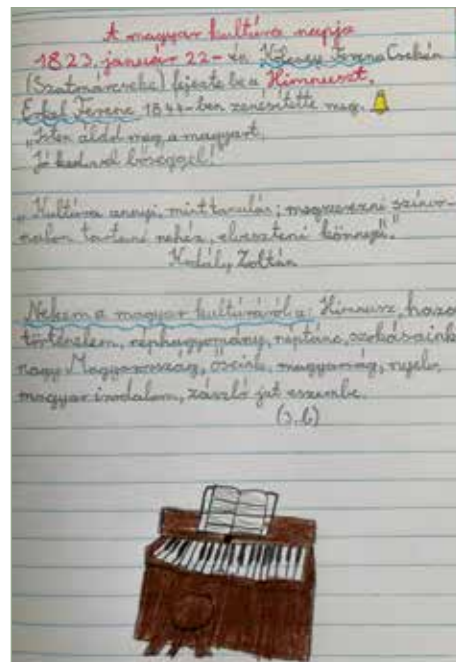 A magyar kultúra napja
1823. január 22-én Kölcsey Ferenc Csekén
(Szatmárcseke) fejezte be a Himnuszt,
Erkel Ferenc 1844-ben zenésítette meg.
„Isten áldd meg a magyart,
Jó kedvvel bőséggel!
„Kultúra annyi, mint tanulás; megszerezni színvo-
nalon tartani nehéz, elveszteni könnyű."
Kodály Zoltán
Nekem a magyar kultúráról a: Himnusz, haza
történelem, néphagyomány, néptánc, szokásaink
nagy Magyarország, őseink, magyarság, nyelv,
magyar irodalom, zászló jut eszembe.
(3.b)